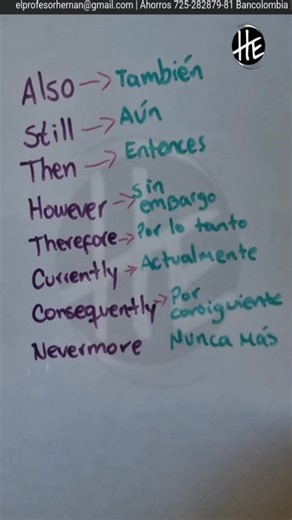 elprofesorhernan@gmail.com | Ahorros 725-282879-81 Bancolombia
HE
Also → También
Still → Aún
Then → Entonces
However → sin
embargo
Therefore → Por lo tanto
Currently → Actualmente
Consequently → Por
consiguiente
Nevermore Nunca Más